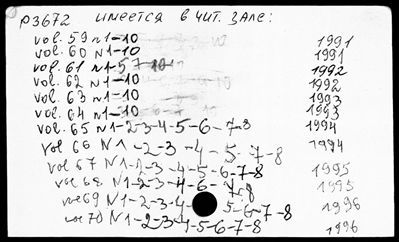 р3672 имеется в чит. зале:
vol. 59 N1-10 1991
vol. 60 N1-10 1991
vol. 61 N1-5 7-10 1992
vol. 62 N1-10 1992
vol. 63 N1-10 1993
vol. 64 N1-10 1993
vol. 65 N1-2-3-4-5-6-7-8 1994
vol 66 N1-2-3-4-5-7-8 1994
vol 67 N1-2-3-4-5-6-7-8 1995
vol 68 N1-2-3-4-6-7-8 1995
vol 69 N1-2-3-4 5-6-7-8 1996
vol 70 N1-2-3-4-5-6-7-8 1996